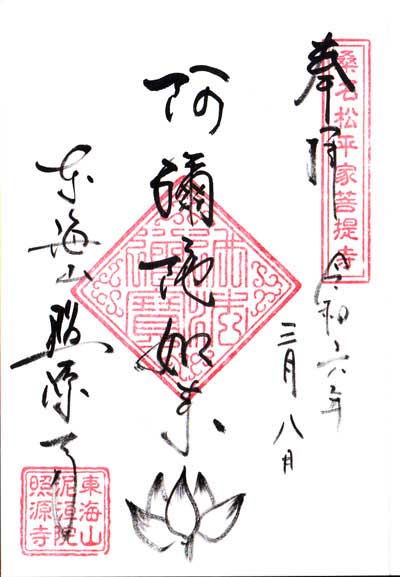 桑名松平家菩提寺
奉拝
令和六年
三月八日
阿彌陀如来
佛法僧寶
東海山照源寺
東海山
泥洹院
照源寺